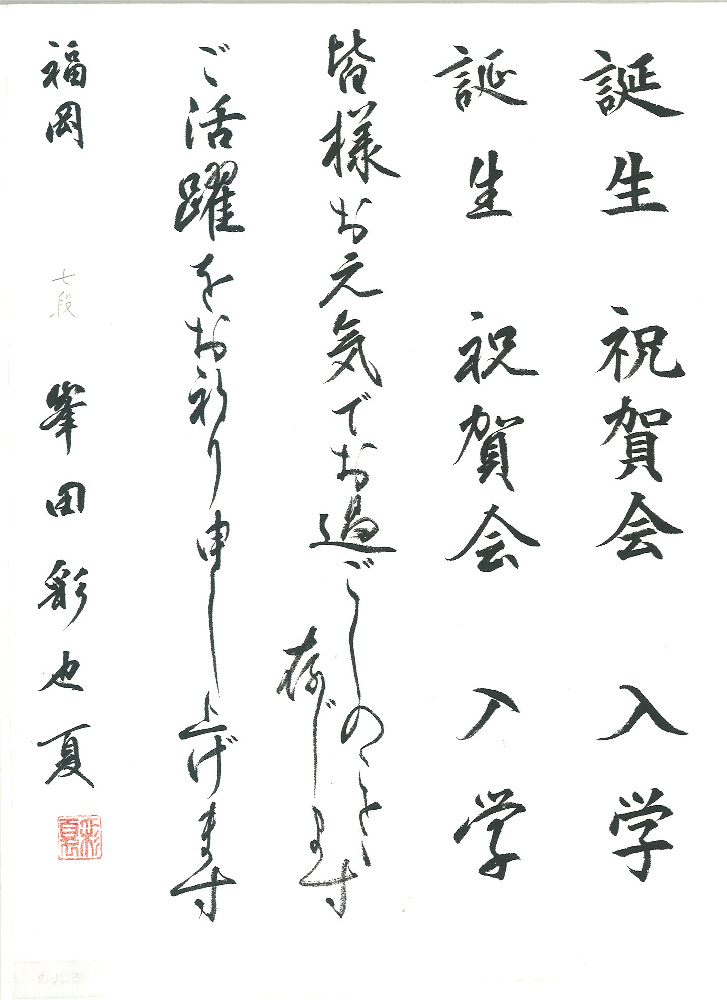 誕生 祝賀会 入学
誕生 祝賀会 入学
皆様お元気でお過ごしのことゝ
存じます
ご活躍をお祈り申し上げます
福岡 七段 峯田彩也夏
彩夏